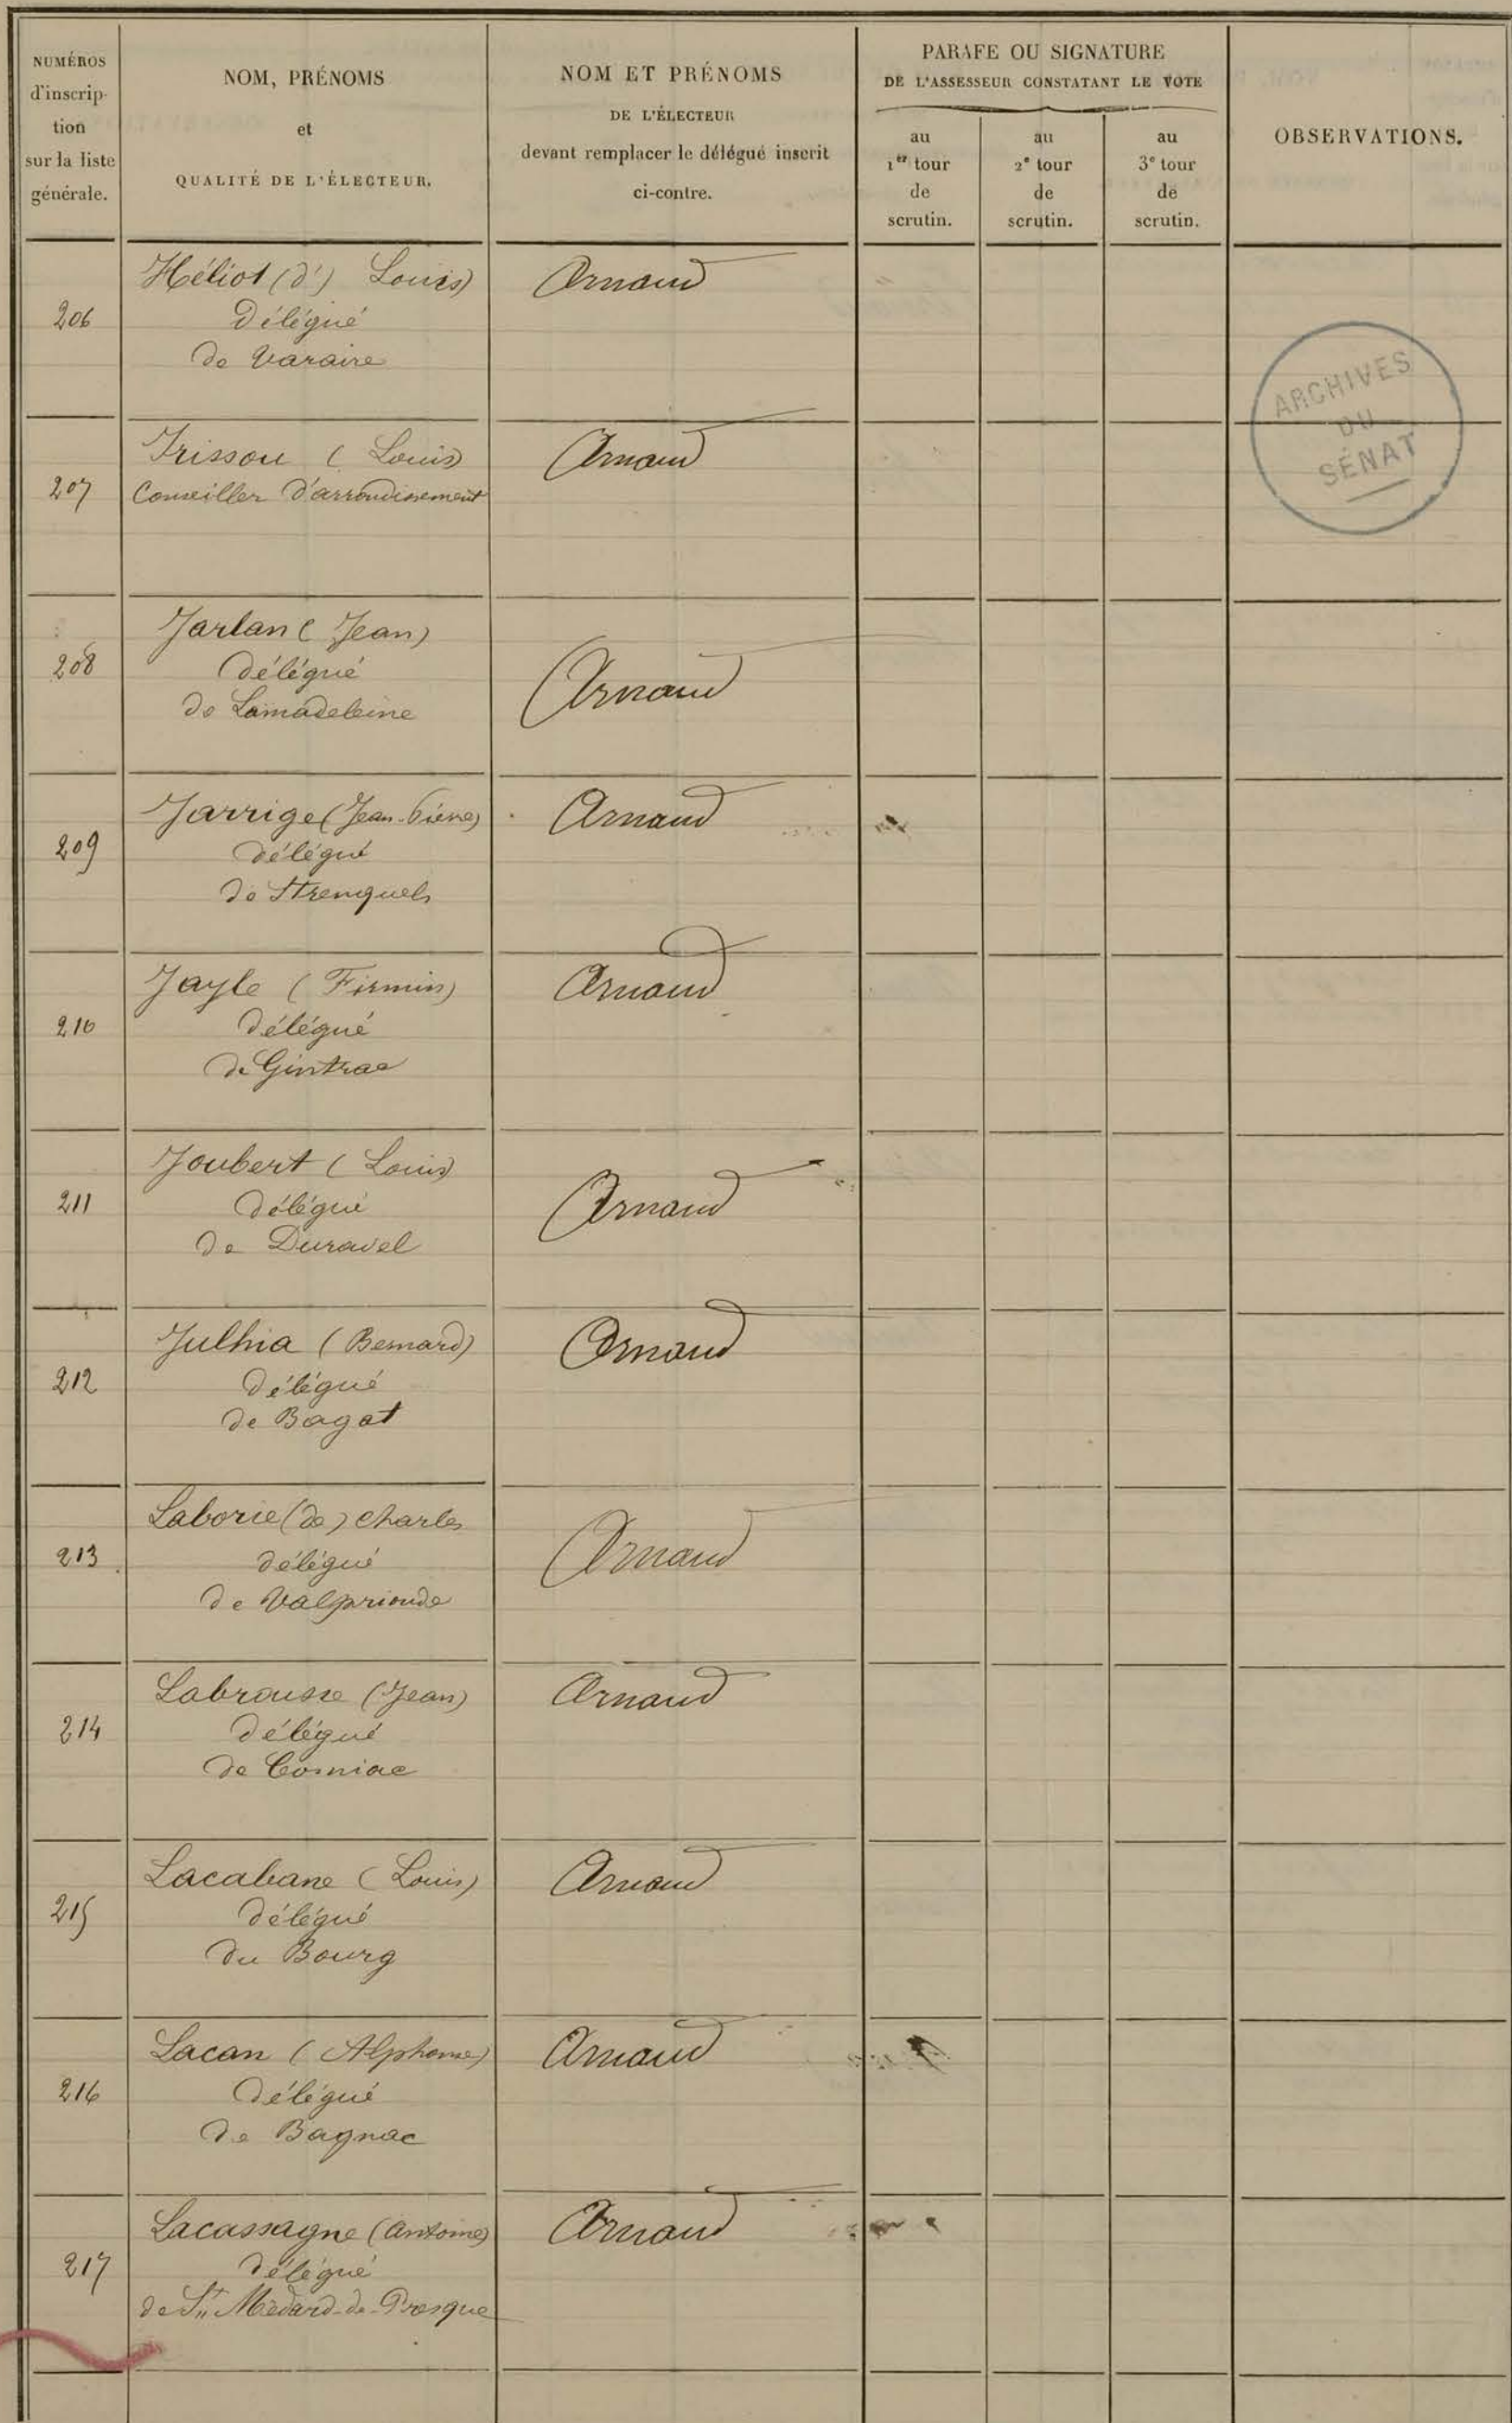 NUMÉROS
d'inscrip-
tion
sur la liste
générale.
NOM, PRÉNOMS
et
QUALITÉ DE L'ÉLECTEUR.
NOM ET PRÉNOMS
DE L'ÉLECTEUR
devant remplacer le délégué inscrit
ci-contre.
PARAFE OU SIGNATURE
DE L'ASSESSEUR CONSTATANT LE VOTE
au
1er tour
de
scrutin.
au
2e tour
de
scrutin.
au
3e tour
de
scrutin.
OBSERVATIONS.
206
Héliot (d') Louis
Délégué
de Varaire
Arnaud
ARCHIVES
DU
SÉNAT
207
Irissou (Louis)
Conseiller d'arrondissement
Arnaud
208
Jarlan (Jean)
délégué
de Lamadeleine
Arnaud
209
Jarrige (Jean-Pierre)
délégué
de Strenquels
Arnaud
210
Jayle (Firmin)
délégué
de Gintrac
Arnaud
211
Joubert (Louis)
délégué
de Duravel
Arnaud
212
Julhia (Bernard)
délégué
de Bagat
Arnaud
213
Laborie (de) Charles
délégué
de Valprionde
Arnaud
214
Labrousse (Jean)
délégué
de Corniac
Arnaud
215
Lacabane (Louis)
délégué
du Bourg
Arnaud
216
Lacan (Alphonse)
délégué
de Bagnac
Arnaud
217
Lacassagne (Antoine)
délégué
de St Médard-de-Presque
Arnaud